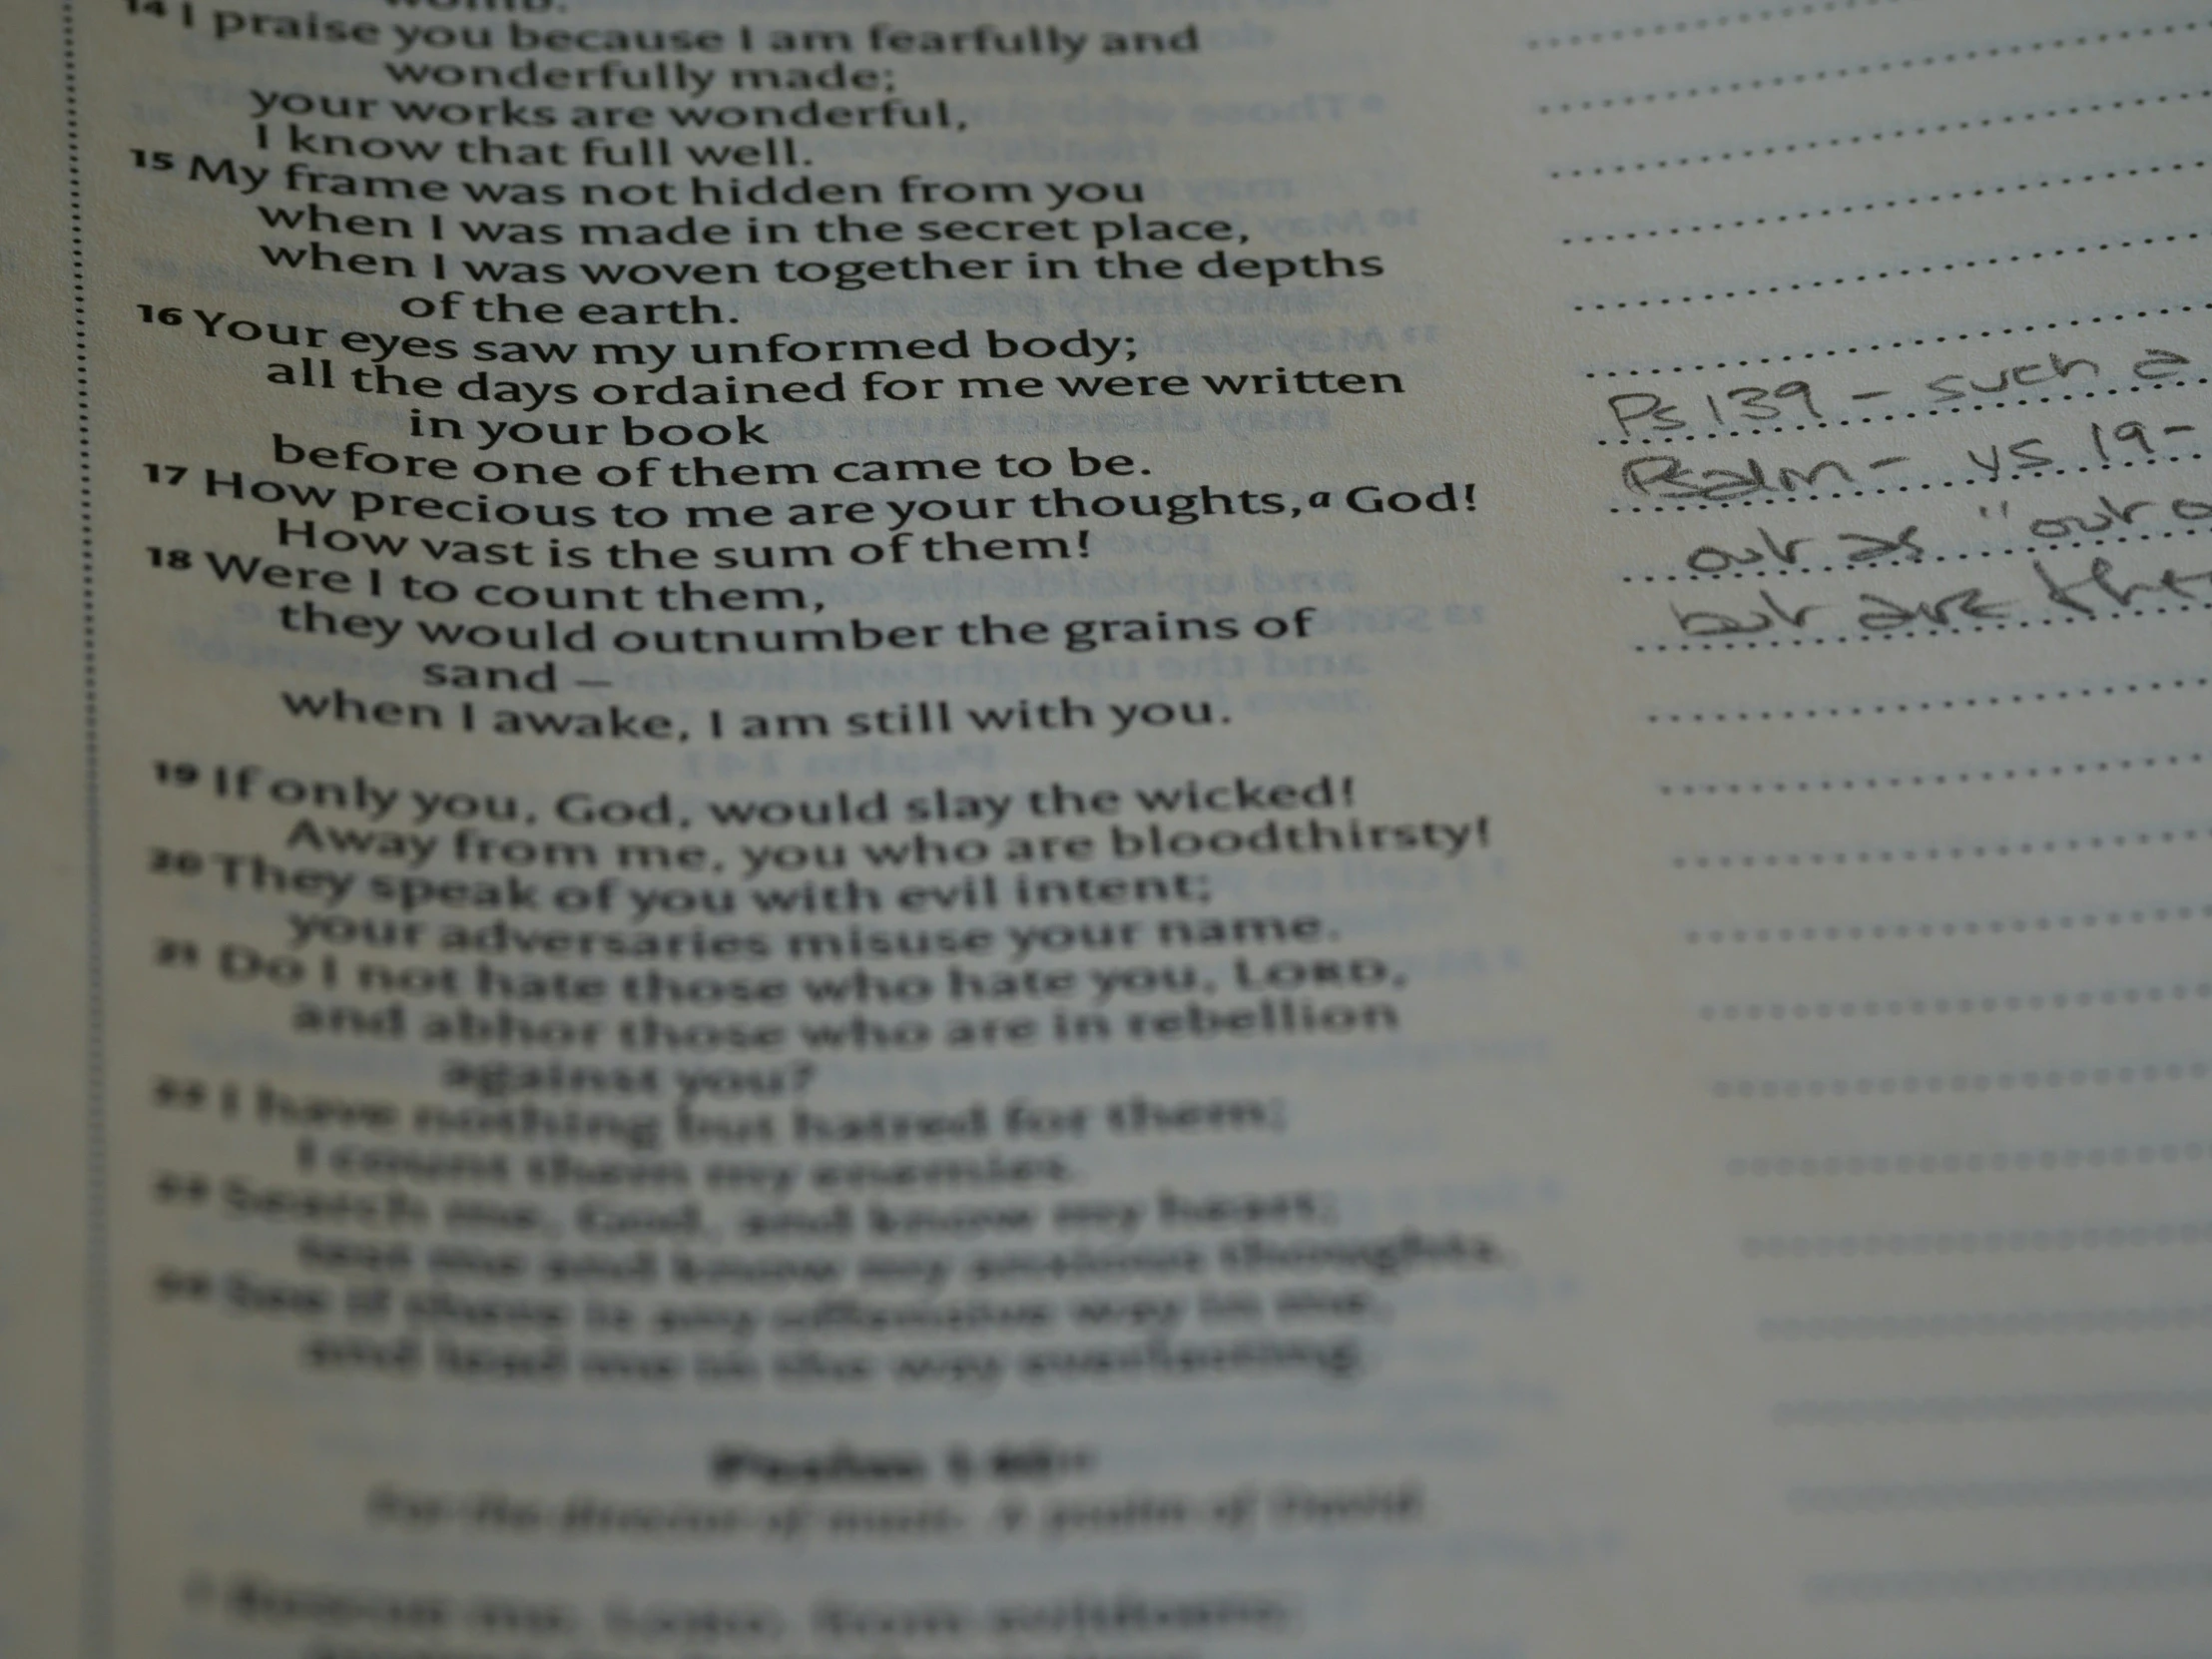 womb.
14 I praise you because I am fearfully and
wonderfully made;
your works are wonderful,
I know that full well.
15 My frame was not hidden from you
when I was made in the secret place,
when I was woven together in the depths
of the earth.
16 Your eyes saw my unformed body;
all the days ordained for me were written
in your book
before one of them came to be.
17 How precious to me are your thoughts,a God!
How vast is the sum of them!
18 Were I to count them,
they would outnumber the grains of
sand —
when I awake, I am still with you.
19 If only you, God, would slay the wicked!
Away from me, you who are bloodthirsty!
20 They speak of you with evil intent;
your adversaries misuse your name.
21 Do I not hate those who hate you, LORD,
and abhor those who are in rebellion
against you?
22 I have nothing but hatred for them;
I count them my enemies.
23 Search me, God, and know my heart;
test me and know my anxious thoughts.
24 See if there is any offensive way in me,
and lead me in the way everlasting.
Psalm 140
For the director of music. A psalm of David.
Ps 139 - such a
Psalm - vs 19-
out as "out o
but are the